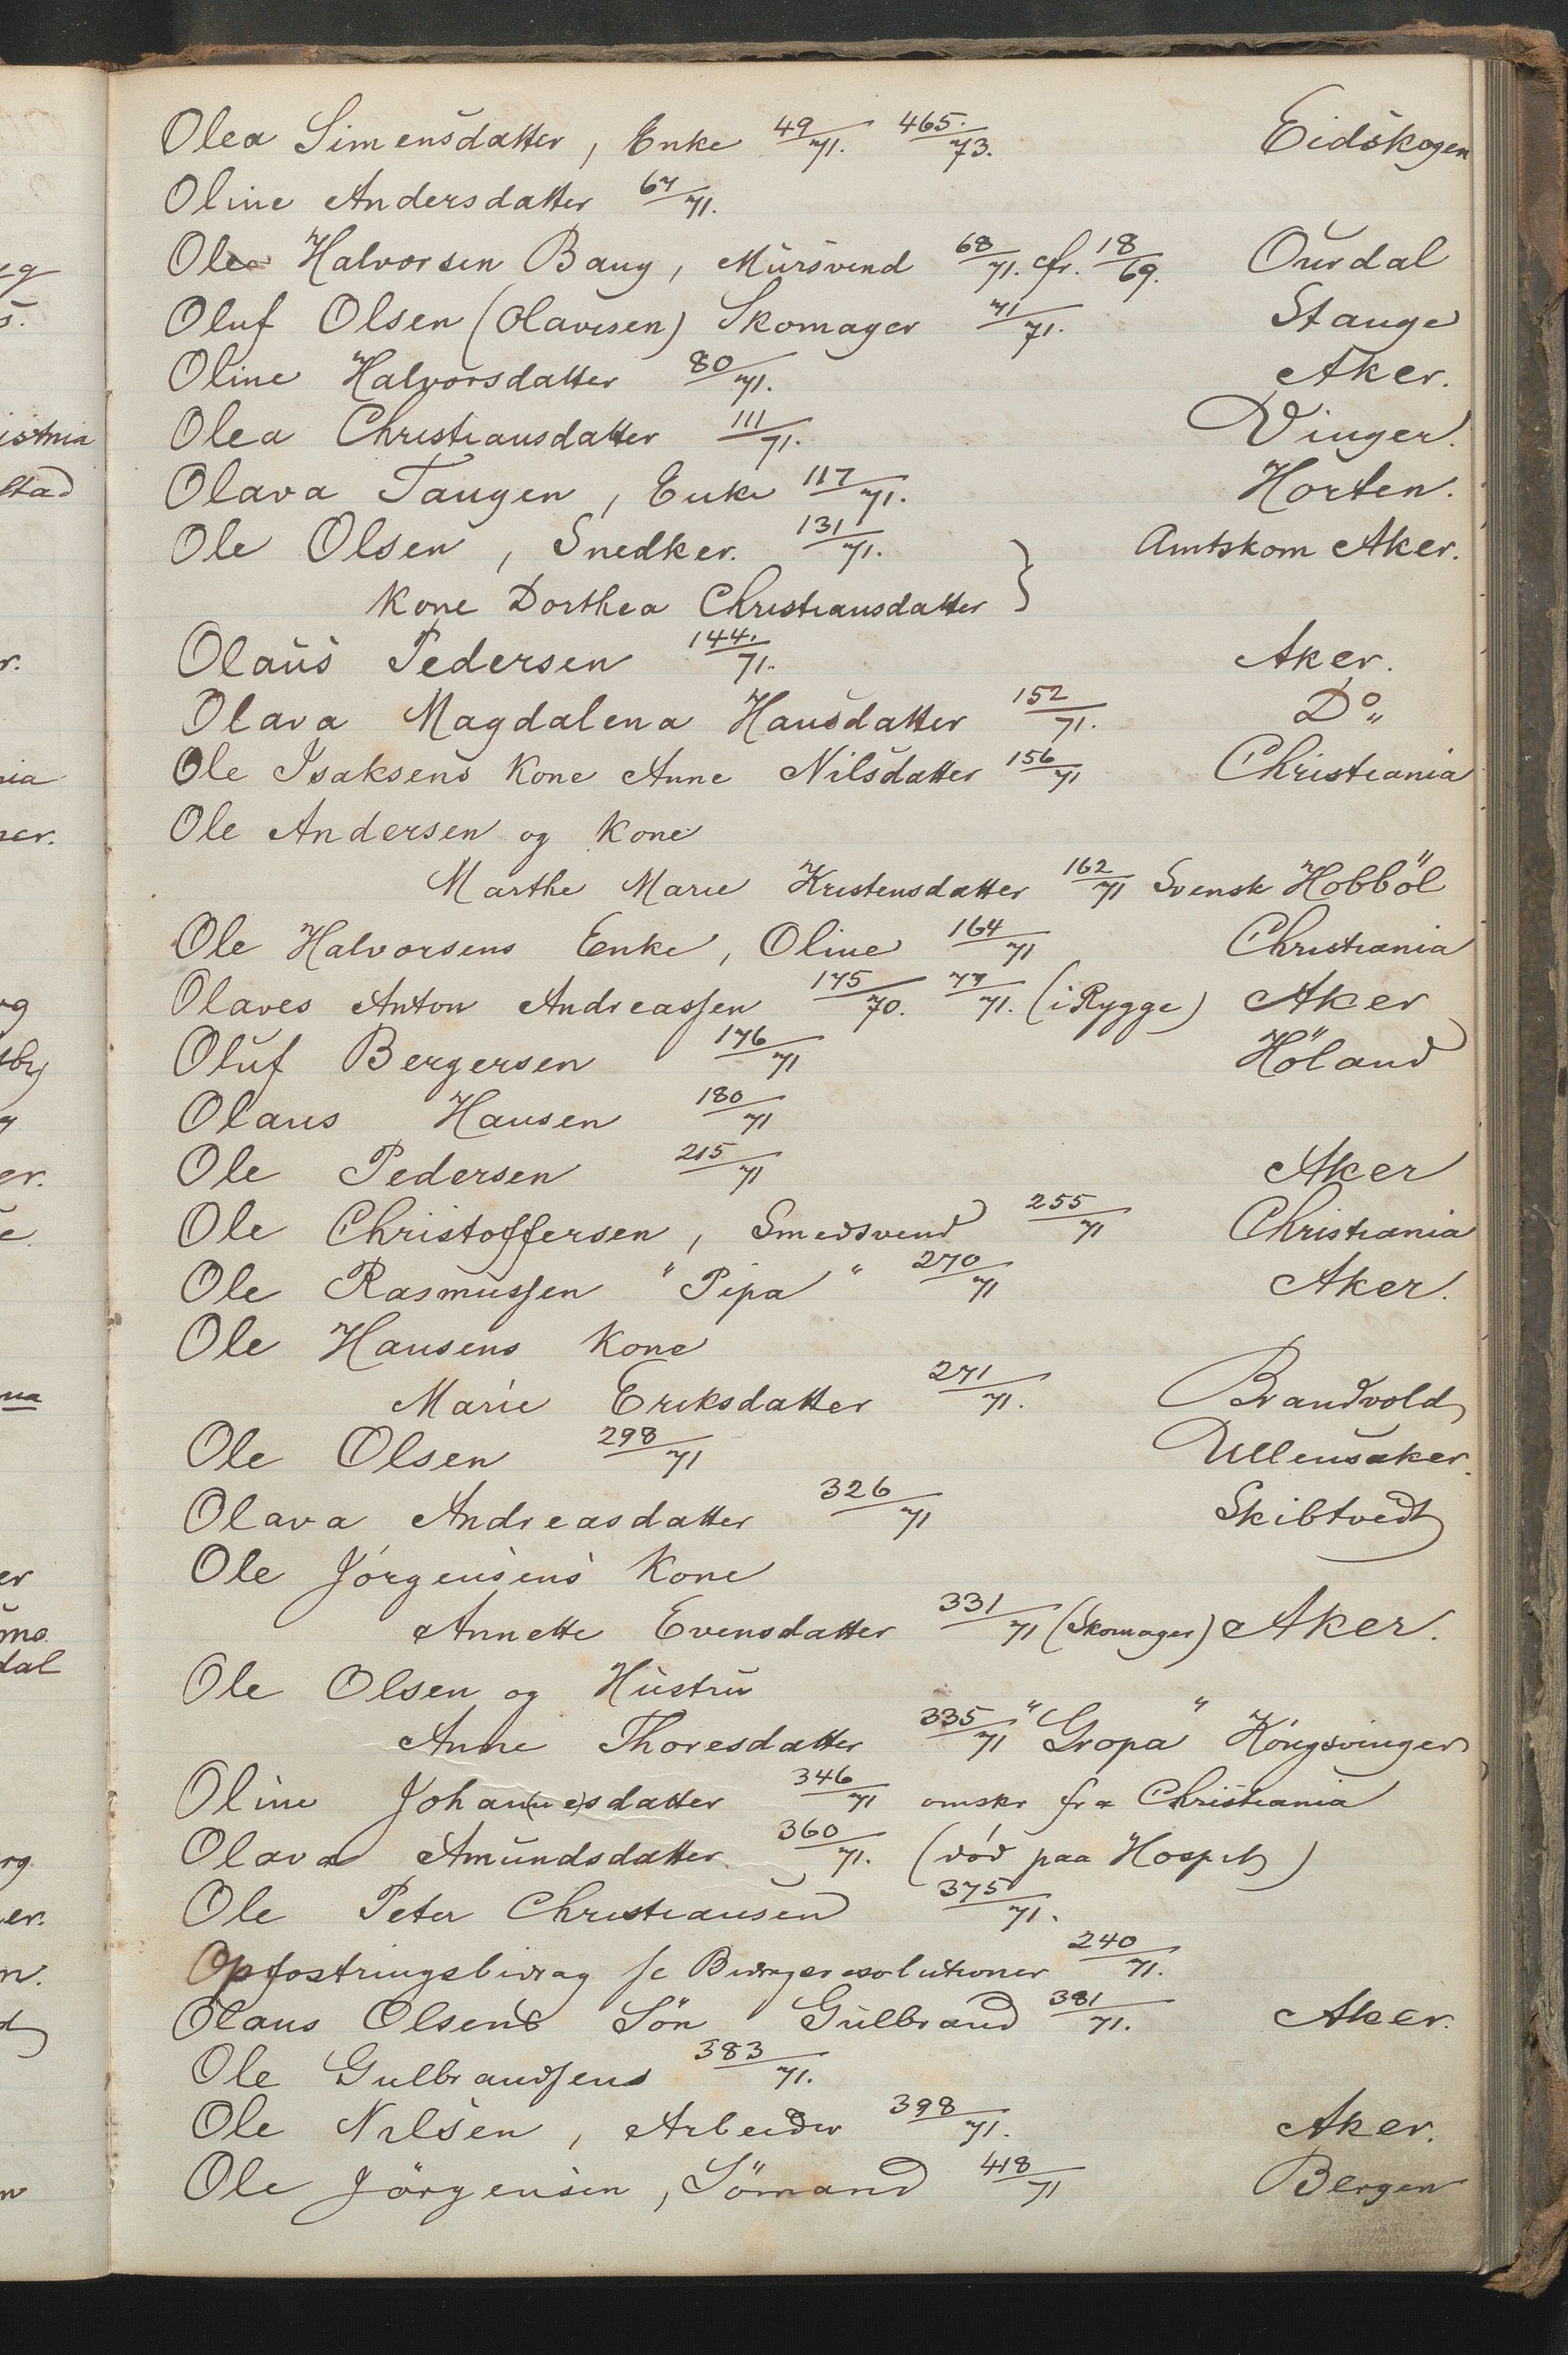 Olea Simensdatter, Enke 49/71. 465/73. Eidskogen
Oline Andersdatter 67/71.
Ole Halvorsen Baug, Mursvend 68/71. cfr. 18/69. Ourdal
Oluf Olsen (Olavesen) Skomager 71/71. Stange
Oline Halvorsdatter 80/71. Aker.
Olea Christiansdatter 111/71. Vinger.
Olava Tangen, Enke 117/71. Horten.
Ole Olsen, Snedker. 131/71. Amtskom Aker.
Kone Dorthea Christiansdatter }
Olaus Pedersen 144/71. Aker.
Olava Magdalena Hansdatter 152/71. Do „
Ole Isaksens Kone Anne Nilsdatter 156/71 Christiania
Ole Andersen og Kone
Marthe Marie Kristensdatter 162/71 Svensk Hobböl
Ole Halvorsens Enke, Oline 164/71 Christiania
Olaves Anton Andreassen 175/70. 77/71. (i Rygge) Aker
Oluf Bergersen 176/71 Höland
Olaus Hansen 180/71
Ole Pedersen 215/71 Aker
Ole Christoffersen, Smedsvend 255/71 Christiania
Ole Rasmussen "Pipa" 270/71 Aker.
Ole Hansens Kone
Marie Eriksdatter 271/71. Brandvold
Ole Olsen 298/71 Ullensaker.
Olava Andreasdatter 326/71 Skibtvedt
Ole Jörgensens Kone
Annette Evensdatter 331/71 (Skomager) Aker.
Ole Olsen og Hustru
Anne Thoresdatter 335/71 "Gropa" Kongsvinger
Oline Johan(ne)sdatter 346/71 omskr fra Christiania
Olava Amundsdatter. 360/71. (död paa Hospit)
Ole Peter Christiansen 375/71.
Opfostringsbidrag se Bidragsresolutioner 240/71.
Olaus Olsens Sön Gulbrand 381/71. Aker.
Ole Gulbrandsens 383/71.
Ole Nilsen, Arbeider 398/71. Aker.
Ole Jörgensen, Sömand 418/71 Bergen